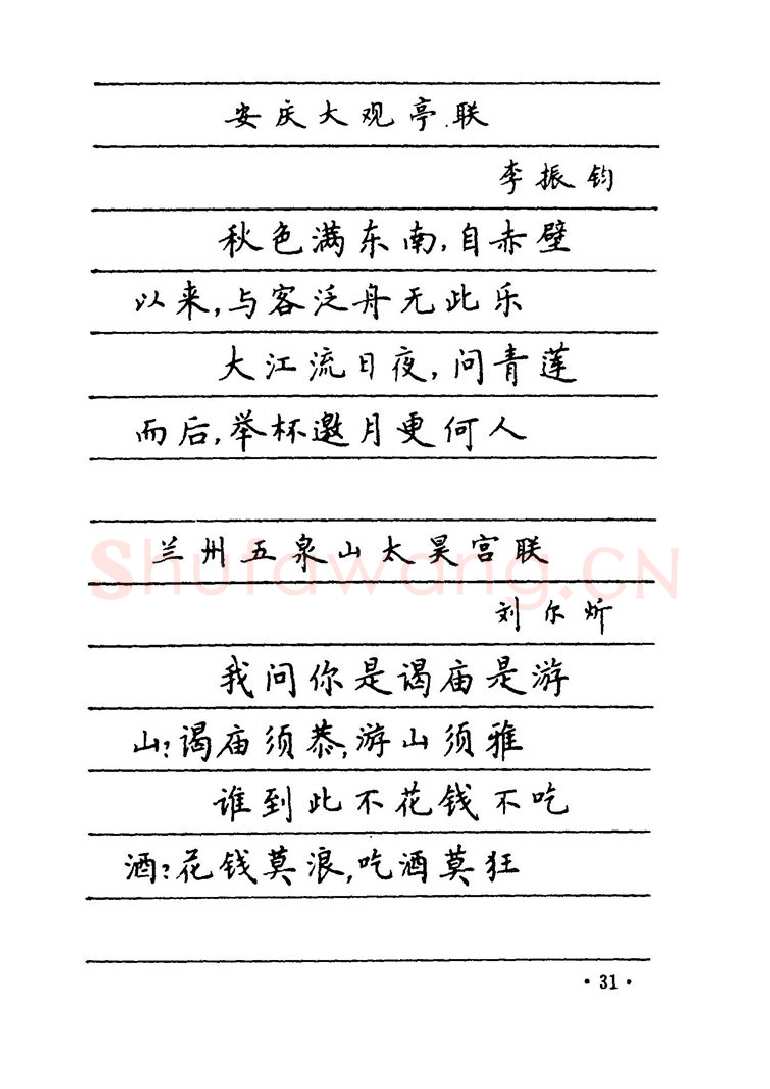 安庆大观亭联
李振钧
秋色满东南,自赤壁
以来,与客泛舟无此乐
大江流日夜,问青莲
而后,举杯邀月更何人
兰州五泉山太昊宫联
shufawang.CN
刘尔炘
我问你是谒庙是游
山?谒庙须恭,游山须雅
谁到此不花钱不吃
酒?花钱莫浪,吃酒莫狂
·31·